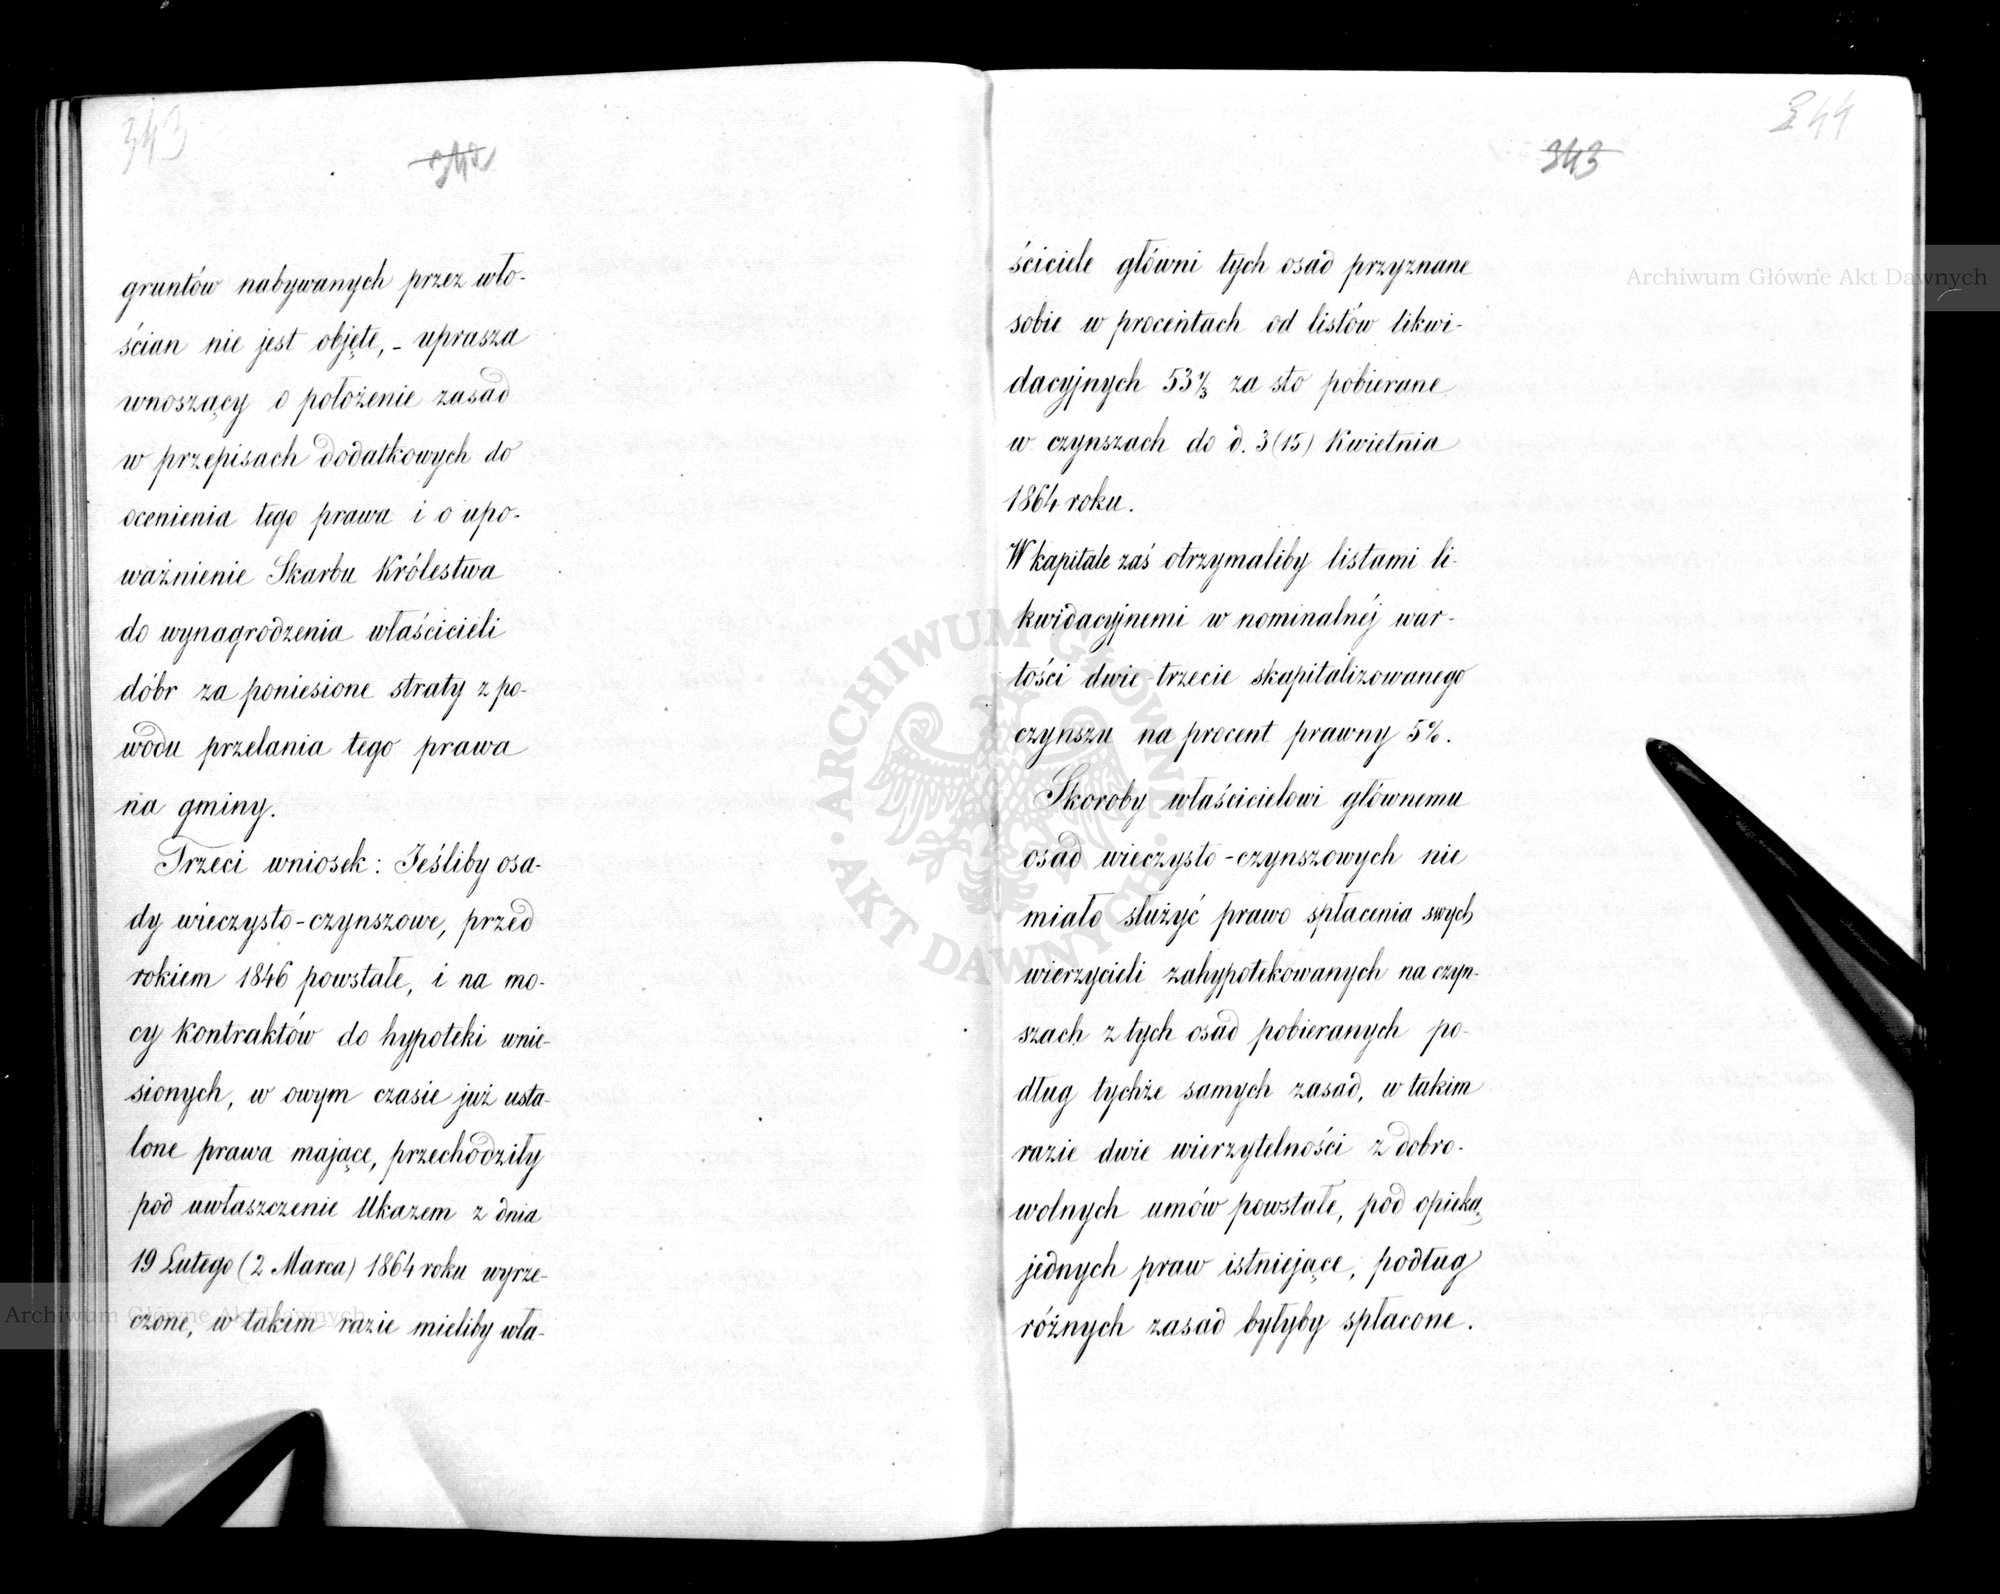 343
342
gruntów nabywanych przez wło-
ścian nie jest objęte, - uprasza
wnoszący o położenie zasad
w przepisach dodatkowych do
ocenienia tego prawa i o upo-
ważnienie Skarbu Królestwa
do wynagrodzenia właścicieli
dóbr za poniesione straty z po-
wodu przelania tego prawa
na gminy.
Trzeci wniosek: Jeśliby osa-
dy wieczysto-czynszowe, przed
rokiem 1846 powstałe, i na mo-
cy kontraktów do hypoteki wnie-
sionych, w owym czasie już usta-
lone prawa mające, przechodziły
pod uwłaszczenie Ukazem z dnia
19 Lutego (2 Marca) 1864 roku wyrze-
czone, w takim razie mieliby wła-
344
343
ściciele główni tych osad przyznane
sobie w procentach od listów likwi-
dacyjnych 53 1/3 za sto pobierane
w czynszach do d. 3(15) Kwietnia
1864 roku.
W kapitale zaś otrzymaliby listami li-
kwidacyjnemi w nominalnéj war-
tości dwie-trzecie skapitalizowanego
czynszu na procent prawny 5%.
Skoroby właścicielowi głównemu
osad wieczysto-czynszowych nie
miało służyć prawo spłacenia swych
wierzycieli zahypotekowanych na czyn-
szach z tych osad pobieranych po-
dług tychże samych zasad, w takim
razie dwie wierzytelności z dobro-
wolnych umów powstałe, pod opieką
jednych praw istniejące, podług
różnych zasad byłyby spłacone.
Archiwum Główne Akt Dawnych
Archiwum Główne Akt Dawnych
ARCHIWUM GŁÓWNE AKT DAWNYCH